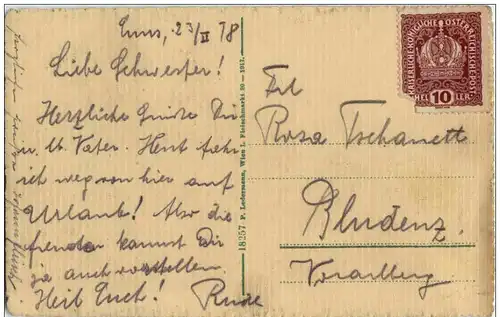 Enns, 23/II 18
Liebe Schwester!
Herzliche Grüsse Dir
u. lb. Vater. Heut fahr
ich weg von hier auf
Urlaub! Also die
Freude kannst Dir
ja auch vorstellen.
Heil Euch! Rude
18257 P. Ledermann, Wien I. Fleischmarkt 20 - 1917.
KAISERLICHE KÖNIGLICHE ÖSTERREICHISCHE POST
10
HELLER
Frl
Rosa Tschanett
Bludenz.
Vorarlberg